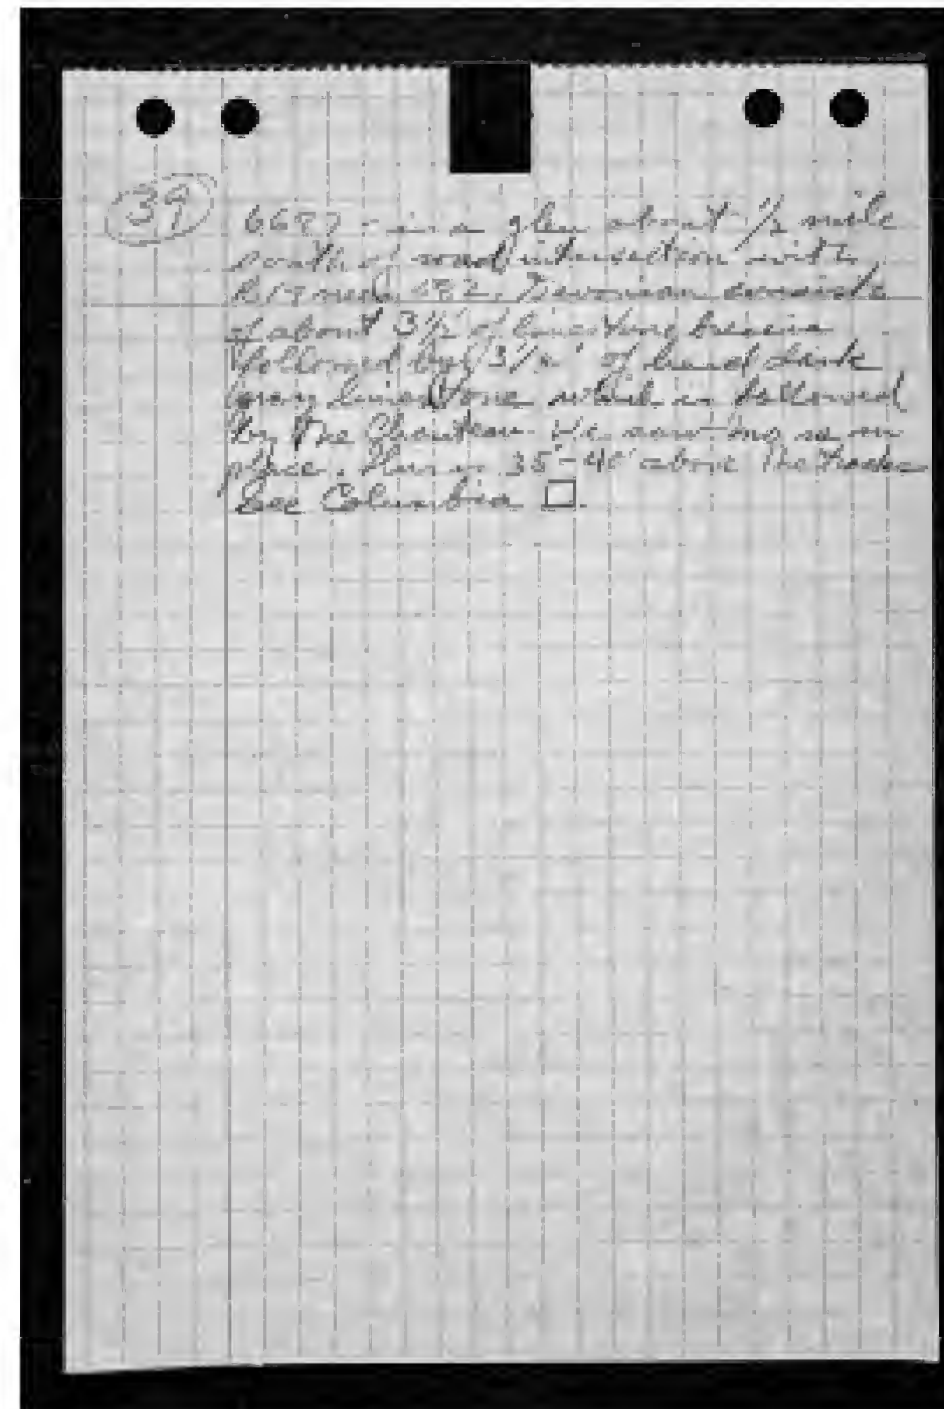 39
6687 - in a glen about 1/2 mile
south of road intersection with
near 682. Devonian consists
of about 3 1/2' of limestone breccia
followed by 3 1/2' of hard dark
gray limestone which is followed
by the Chouteau. No is in
place. This is 35'-40' above the tracks
See Columbia □.